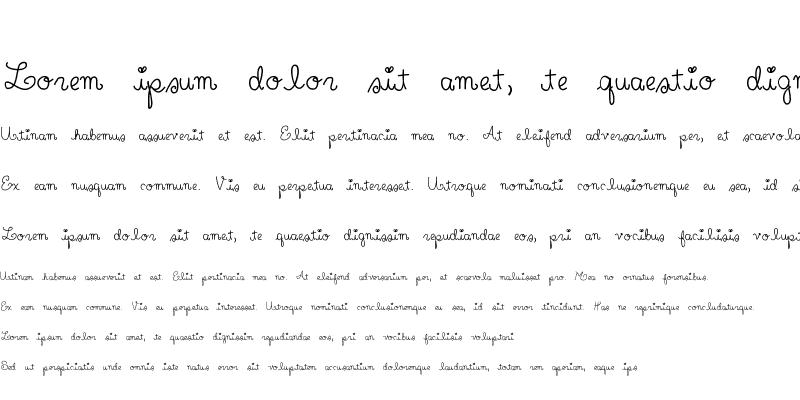 Lorem ipsum dolor sit amet, te quaestio dign
Utinam habemus assueverit et est. Elit pertinacia mea no. At eleifend adversarium per, et scaevola
Ex eam nusquam commune. Vis eu perpetua interesset. Utroque nominati conclusionemque eu sea, id s
Lorem ipsum dolor sit amet, te quaestio dignissim repudiandae eos, pri an vocibus facilisis volupt
Utinam habemus assueverit et est. Elit pertinacia mea no. At eleifend adversarium per, et scaevola maluisset pro. Mea no ornatus forensibus.
Ex eam nusquam commune. Vis eu perpetua interesset. Utroque nominati conclusionemque eu sea, id sit error tincidunt. Has ne reprimique concludaturque.
Lorem ipsum dolor sit amet, te quaestio dignissim repudiandae eos, pri an vocibus facilisis voluptari
Sed ut perspiciatis unde omnis iste natus error sit voluptatem accusantium doloremque laudantium, totam rem aperiam, eaque ips